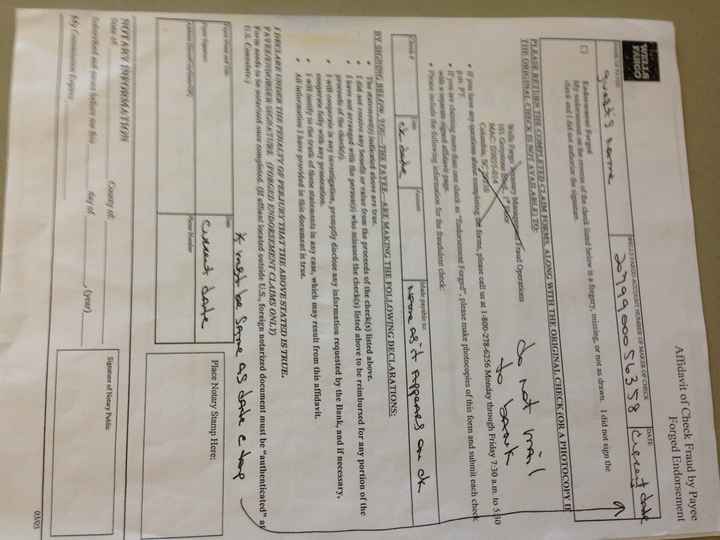 WELLS
FARGO
Affidavit of Check Fraud by Payee
Forged Endorsement
WELLS FARGO ACCOUNT NUMBER OF MAKER OF CHECK
DATE
guest's name
2079900056358
current date
Endorsement Forged
My endorsement on the reverse of the check listed below is a forgery, missing, or not as drawn. I did not sign the
check and I did not authorize the signature.
PLEASE RETURN THE COMPLETED CLAIM FORMS, ALONG WITH THE ORIGINAL CHECK (OR A PHOTOCOPY IF
THE ORIGINAL CHECK IS NOT AVAILABLE) TO:
Wells Fargo Treasury Management Fraud Operations
MAC:
Columbia, SC
do not mail
to bank
If you have any questions about completing the forms, please call us at 1-800-278-6256 Monday through Friday 7:30 a.m. to 5:30
p.m. PT.
If you are claiming more than one check as "Endorsement Forged", please make photocopies of this form and submit each check
with a separate signed affidavit page.
Please include the following information for the fraudulent check:
Check #
Date
Amount
Made payable to:
ck date
name as it appears on ck
BY SIGNING BELOW, YOU—THE PAYEE—ARE MAKING THE FOLLOWING DECLARATIONS:
The statement(s) indicated above are true.
I did not receive any benefit or value from the proceeds of the check(s) listed above.
I have not arranged with the person(s) who misused the check(s) listed above to be reimbursed for any portion of the
proceeds of the check(s).
I will cooperate in any investigation, promptly disclose any information requested by the Bank, and if necessary,
cooperate fully with any prosecution.
I will testify to the truth of these statements in any case, which may result from this affidavit.
All information I have provided in this document is true.
I DECLARE UNDER THE PENALTY OF PERJURY THAT THE ABOVE STATED IS TRUE.
PAYEE/ENDORSER SIGNATURE (FORGED ENDORSEMENT CLAIMS ONLY)
Form needs to be notarized once completed. (If affiant located outside U.S., foreign notarized document must be "authenticated" at
U.S. Consulate.)
* must be same as date @ top
Payee Print and Title
Date
Payee Signature
current date
Phone Number
Place Notary Stamp Here:
NOTARY INFORMATION
State of:
County of:
Subscribed and sworn before me this
day of
, (year)
My Commission Expires:
Signature of Notary Public
03/03